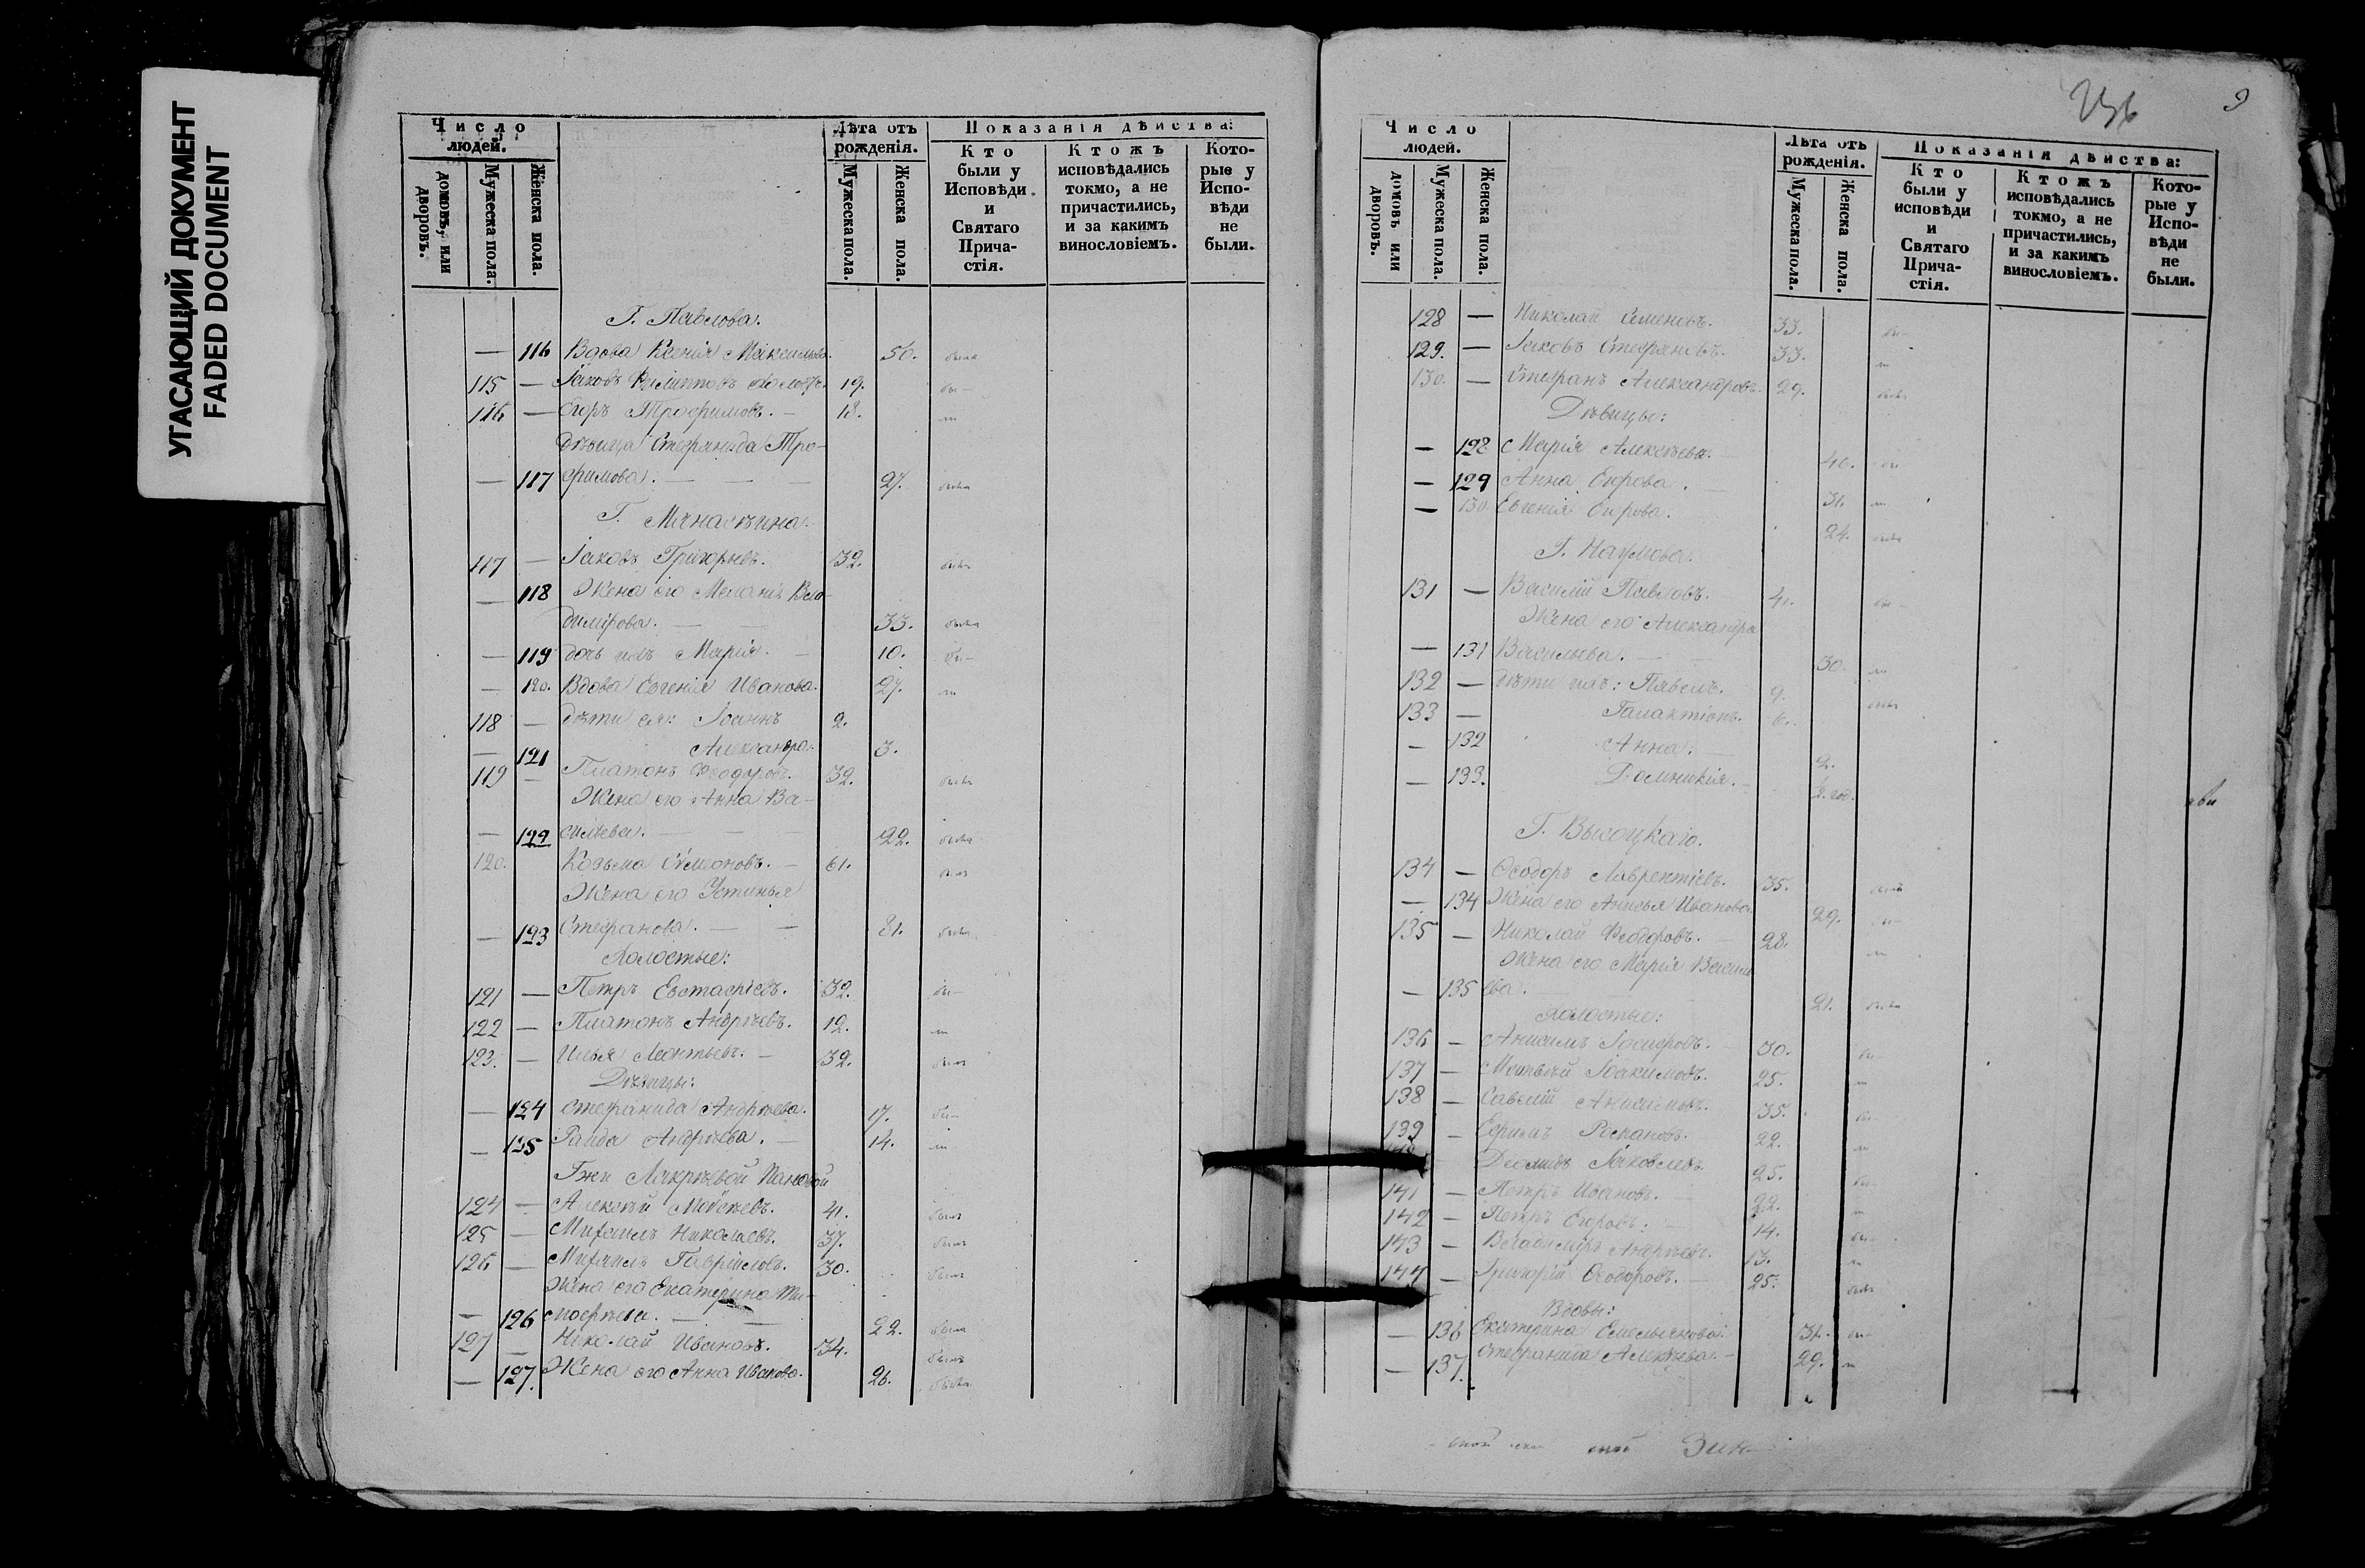 УГАСАЮЩИЙ ДОКУМЕНТ
FADED DOCUMENT
Число людей.
домовъ, или дворовъ.
Мужеска пола.
Женска пола.
Лѣта отъ рожденія.
Мужеска пола.
Женска пола.
Показанія дѣйства:
Кто были у Исповѣди и Святаго Прича-стія.
Ктожъ исповѣдались токмо, а не причастились, и за какимъ винословіемъ.
Кото-рые у Испо-вѣди не были.
Г. Павлова.
— 116 Вдова Ксенія Максимова. 50. была
115 — Іаковъ Филипповъ холостъ. 19. бы—
116 — Егоръ Трофимовъ. — 18.
Дѣвица Стефанида Тро-
— 117 фимова. — — — 27. была
Г. Манасеина.
117 — Іаковъ Григорьевъ. 32. былъ
— 118 Жена его Меланія Вла-
димірова. — — 33. была
— 119 дочь ихъ Марія. — 10. бы—
— 120. Вдова Евгенія Иванова. 27.
118 — дѣти ея: Іоаннъ 2.
— 121 Александра. 3.
119 — Платонъ Феодоровъ. 32. былъ
Жена его Анна Ва-
— 122 сильева. — — — 22. была
120. Козьма Симеоновъ. — 61. былъ
Жена его Устинья
— 123 Стефанова. — — 81. была
Холостые:
121 — Петръ Евстафіевъ. 32. бы—
122 — Платонъ Андреевъ. 12.
123. — Илья Леонтьевъ. — 32. былъ
Дѣвицы:
— 124 Стефанида Андреева. 17. бы—
— 125 Раида Андреева. — 14.
Гжи Макрѣевой Пановой
124 — Алексѣй Моисѣевъ. 41. былъ
125 — Михаилъ Николаевъ. 37. былъ
126 — Михаилъ Гавріиловъ. 30. былъ
Жена его Екатерина Ти-
— 126 моѳѣева. — — 22. была
127 — Николай Ивановъ. 34. былъ
— 127. Жена его Анна Иванова. 26. была
256
9
Число людей.
домовъ или дворовъ.
Мужеска пола.
Женска пола.
Лѣта отъ рожденія.
Мужеска пола.
Женска пола.
Показанія дѣйства:
Кто были у исповѣди и Святаго Прича-стія.
Ктожъ исповѣдались токмо, а не причастились, и за какимъ винословіемъ.
Кото-рые у Испо-вѣди не были.
128 — Николай Семеновъ. 33. бы—
129. — Іаковъ Стефановъ. 33.
130. — Стефанъ Александровъ. 29. былъ
Дѣвицы:
— 128 Марія Алексѣева. 40. бы
— 129 Анна Егорова. — 31.
— 130 Евгенія Егорова. 24. была
Г. Наумова.
131 — Василій Павловъ. 41. бы—
Жена его Александра
— 131 Васильева. — 30.
132 — дѣти ихъ: Павелъ. 9. былъ
133 — Галактіонъ. 6.
— 132 Анна. 2.
— 133. Домникія. — ½ год.
Г. Высоцкаго.
134 — Ѳеодоръ Лаврентіевъ. 35. былъ
— 134 Жена его Анисья Иванова. 29. бы—
135 — Николай Феодоровъ. 28.
Жена его Марія Василь
— 135 ева. 21. была
Холостые:
136 — Анисимъ Іосифовъ. 30. бы—
137 — Матвѣй Іоакимовъ. 25.
138 — Савелій Анисимовъ. 35. бы—
139 — Ефимъ Романовъ. 22.
Діомидъ Іаковлевъ. 25. бы—
141 — Петръ Ивановъ. 22.
142 — Петръ Егоровъ. 14. бы—
143 — Владиміръ Андреевъ. 13.
144 — Григорій Ѳеодоровъ. 25. былъ
Вдовы:
— 136 Екатерина Емельянова. 31. бы—
— 137. Стефанида Алексѣева. — 29.